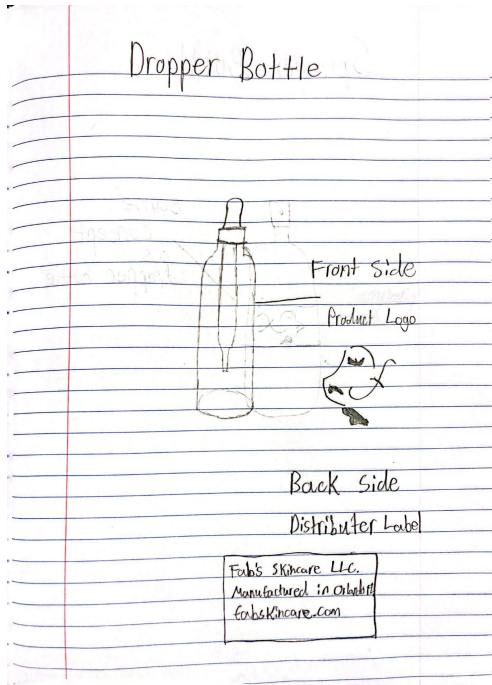 Dropper Bottle
Front Side
Product Logo
Back Side
Distributer Label
Fab's Skincare LLC.
Manufactured in
fabskincare.com